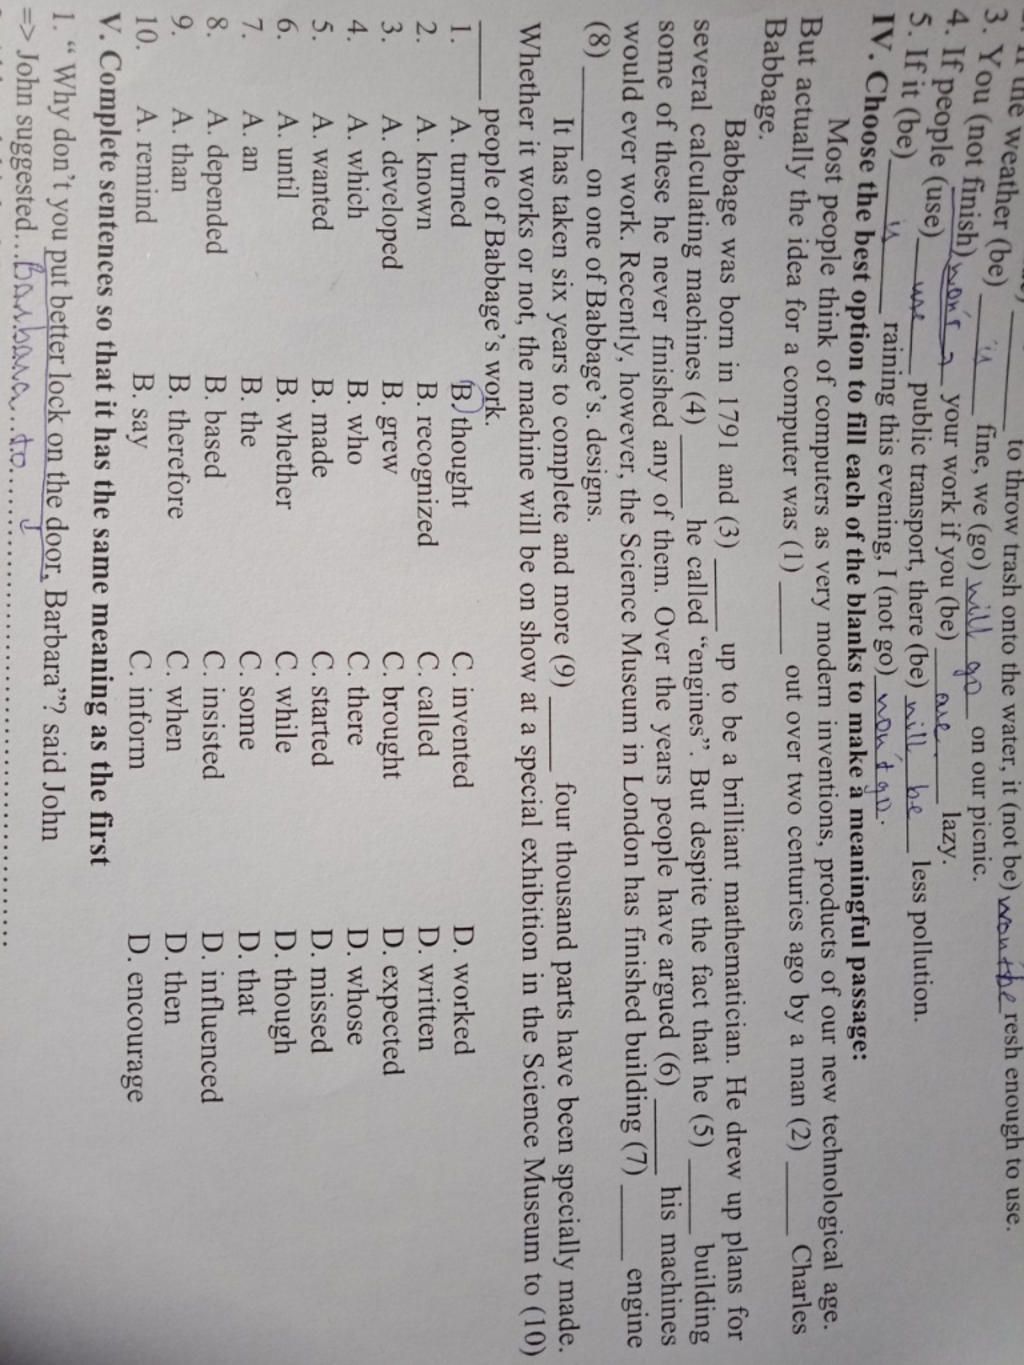 the weather (be) ______ to throw trash onto the water, it (not be) won't be resh enough to use.
3. You (not finish) is fine, we (go) will go on our picnic.
4. If people (use) won't your work if you (be) are lazy.
5. If it (be) use public transport, there (be) will be less pollution.
is raining this evening, I (not go) won't go.
IV. Choose the best option to fill each of the blanks to make a meaningful passage:
Most people think of computers as very modern inventions, products of our new technological age.
But actually the idea for a computer was (1) ____ out over two centuries ago by a man (2) ____ Charles
Babbage.
Babbage was born in 1791 and (3) ____ up to be a brilliant mathematician. He drew up plans for
several calculating machines (4) ____ he called "engines". But despite the fact that he (5) ____ building
some of these he never finished any of them. Over the years people have argued (6) ____ his machines
would ever work. Recently, however, the Science Museum in London has finished building (7) ____ engine
(8) ____ on one of Babbage's. designs.
It has taken six years to complete and more (9) ____ four thousand parts have been specially made.
Whether it works or not, the machine will be on show at a special exhibition in the Science Museum to (10)
____ people of Babbage's work.
1. A. turned B. thought C. invented D. worked
2. A. known B. recognized C. called D. written
3. A. developed B. grew C. brought D. expected
4. A. which B. who C. there D. whose
5. A. wanted B. made C. started D. missed
6. A. until B. whether C. while D. though
7. A. an B. the C. some D. that
8. A. depended B. based C. insisted D. influenced
9. A. than B. therefore C. when D. then
10. A. remind B. say C. inform D. encourage
V. Complete sentences so that it has the same meaning as the first
1. " Why don't you put better lock on the door, Barbara"? said John
=> John suggested...Barbara...to.......................................